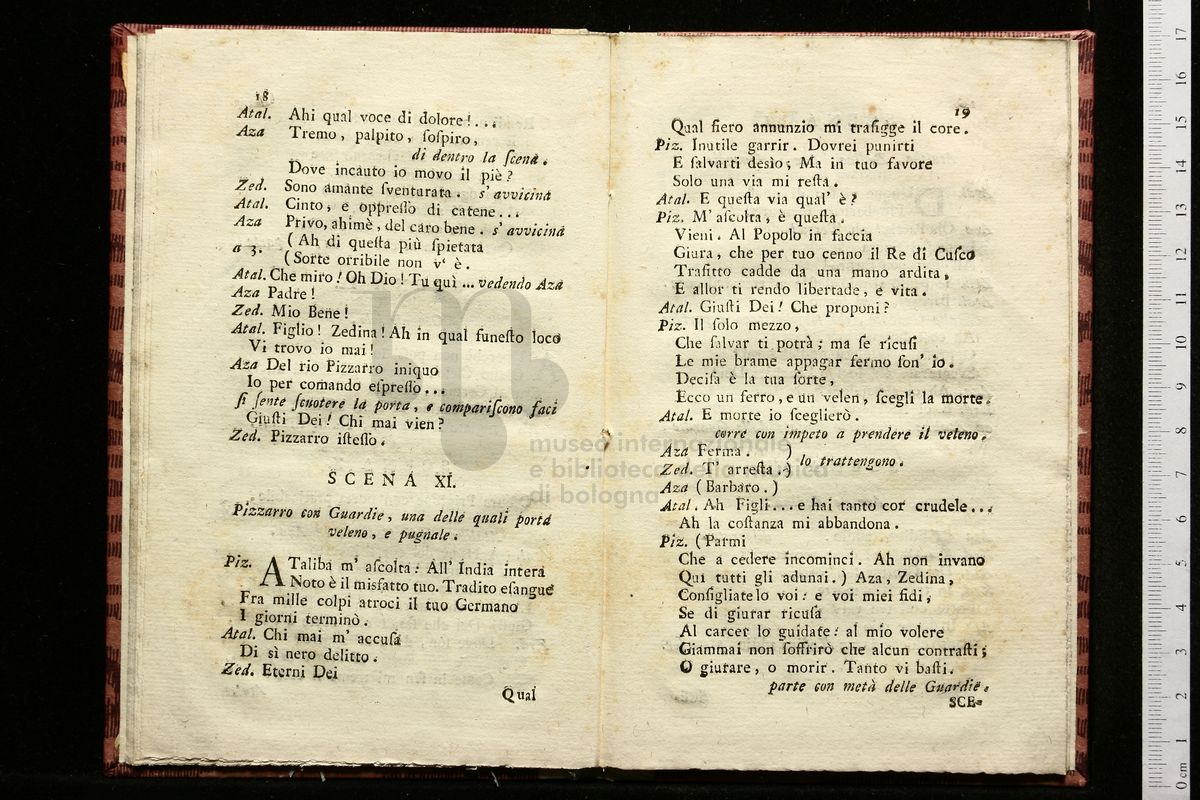 18
Atal. Ahi qual voce di dolore!...
Aza Tremo, palpito, ſoſpiro,
di dentro la ſcena.
Dove incauto io movo il piè?
Zed. Sono amante ſventurata. s' avvicina
Atal. Cinto, e oppreſſo di catene...
Aza Privo, ahimè, del caro bene. s' avvicina
a 3. (Ah di queſta più ſpietata
(Sorte orribile non v' è.
Atal. Che miro! Oh Dio! Tu quì ... vedendo Aza
Aza Padre!
Zed. Mio Bene!
Atal. Figlio! Zedina! Ah in qual funeſto loco
Vi trovo io mai!
Aza Del rio Pizzarro iniquo
Io per comando eſpreſſo...
ſi ſente ſcuotere la porta, e compariſcono faci
Giuſti Dei! Chi mai vien?
Zed. Pizzarro iſteſſo.
SCENA XI.
Pizzarro con Guardie, una delle quali porta
veleno, e pugnale.
Piz. ATaliba m' aſcolta: All' India intera
Noto è il misfatto tuo. Tradito eſangue
Fra mille colpi atroci il tuo Germano
I giorni terminò.
Atal. Chi mai m' accuſa
Di sì nero delitto.
Zed. Eterni Dei
Qual
19
Qual fiero annunzio mi trafigge il core.
Piz. Inutile garrir. Dovrei punirti
E ſalvarti desìo; Ma in tuo favore
Solo una via mi reſta.
Atal. E queſta via qual' è?
Piz. M' aſcolta, è queſta.
Vieni. Al Popolo in faccia
Giura, che per tuo cenno il Re di Cuſco
Trafitto cadde da una mano ardita,
E allor ti rendo libertade, e vita.
Atal. Giuſti Dei! Che proponi?
Piz. Il ſolo mezzo,
Che ſalvar ti potrà; ma ſe ricuſi
Le mie brame appagar fermo ſon' io.
Deciſa è la tua ſorte,
Ecco un ferro, e un velen, ſcegli la morte.
Atal. E morte io ſceglierò.
corre con impeto a prendere il veleno.
Aza Ferma. )
Zed. T' arreſta.) lo trattengono.
Aza (Barbaro.)
Atal. Ah Figli...e hai tanto cor crudele...
Ah la coſtanza mi abbandona.
Piz. (Parmi
Che a cedere incominci. Ah non invano
Qui tutti gli adunai.) Aza, Zedina,
Conſigliatelo voi: e voi miei fidi,
Se di giurar ricuſa
Al carcer lo guidate: al mio volere
Giammai non ſoffrirò che alcun contraſti;
O giurare, o morir. Tanto vi baſti.
parte con metà delle Guardie.
SCE-
museo internazionale
e biblioteca della musica
di bologna